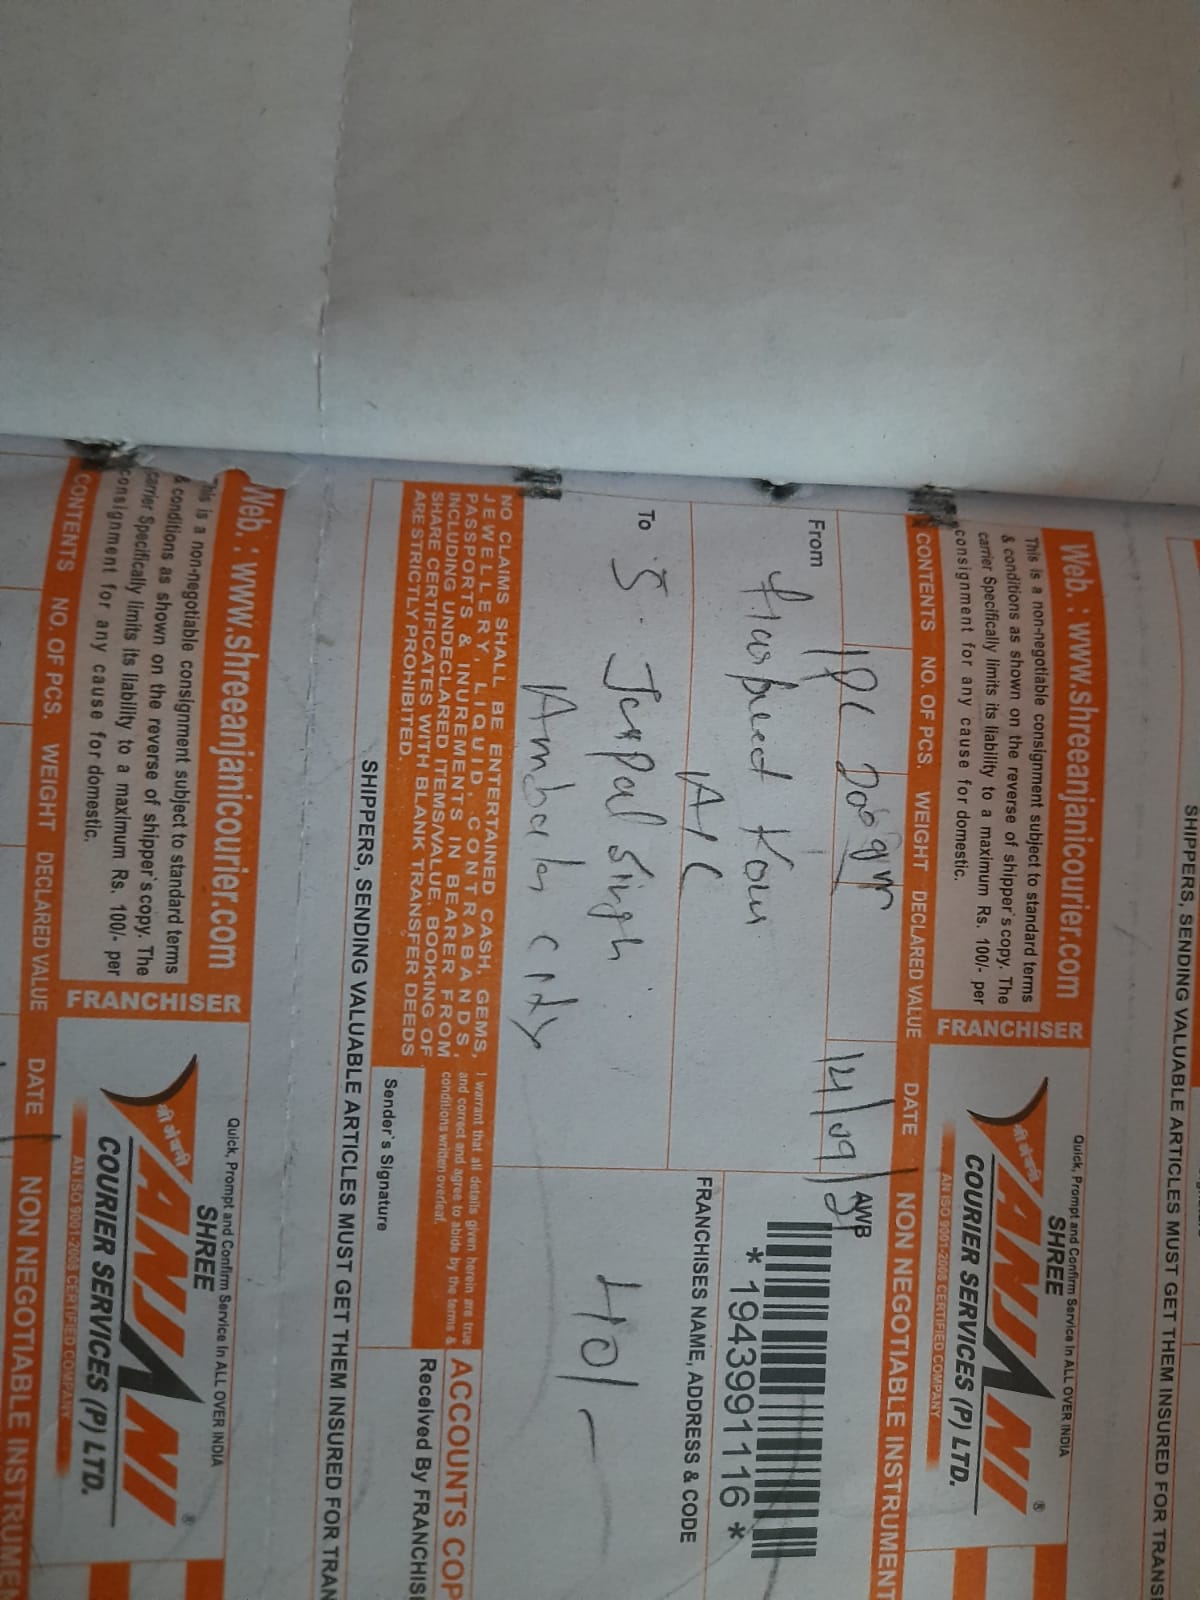 SHIPPERS, SENDING VALUABLE ARTICLES MUST GET THEM INSURED FOR TRANS
Web. : www.shreeanjanicourier.com
This is a non-negotiable consignment subject to standard terms
& conditions as shown on the reverse of shipper's copy. The
carrier Specifically limits its liability to a maximum Rs. 100/- per
consignment for any cause for domestic.
FRANCHISER
Quick, Prompt and Confirm Service in ALL OVER INDIA
SHREE
श्री अंजनी
ANJANI
®
COURIER SERVICES (P) LTD.
AN ISO 9001-2008 CERTIFIED COMPANY
CONTENTS NO. OF PCS. WEIGHT DECLARED VALUE DATE NON NEGOTIABLE INSTRUMENT
1PC 200 gm 14/09/
AWB
* 1943991116 *
From
Harpreet Kour
A/C
FRANCHISES NAME, ADDRESS & CODE
To
S. Jaspal Singh
Ambala city
40/-
NO CLAIMS SHALL BE ENTERTAINED CASH, GEMS,
JEWELLERY, LIQUID, CONTRABANDS,
PASSPORTS & INUREMENTS IN BEARER FROM
INCLUDING UNDECLARED ITEMS/VALUE. BOOKING OF
SHARE CERTIFICATES WITH BLANK TRANSFER DEEDS
ARE STRICTLY PROHIBITED.
I warrant that all details given herein are true
and correct and agree to abide by the terms &
conditions written overleaf.
ACCOUNTS COP
Sender's Signature
Received By FRANCHIS
SHIPPERS, SENDING VALUABLE ARTICLES MUST GET THEM INSURED FOR TRAN
Web. : www.shreeanjanicourier.com
This is a non-negotiable consignment subject to standard terms
& conditions as shown on the reverse of shipper's copy. The
carrier Specifically limits its liability to a maximum Rs. 100/- per
consignment for any cause for domestic.
FRANCHISER
Quick, Prompt and Confirm Service in ALL OVER INDIA
SHREE
श्री अंजनी
ANJANI
®
COURIER SERVICES (P) LTD.
AN ISO 9001-2008 CERTIFIED COMPANY
CONTENTS NO. OF PCS. WEIGHT DECLARED VALUE DATE NON NEGOTIABLE INSTRUMEN